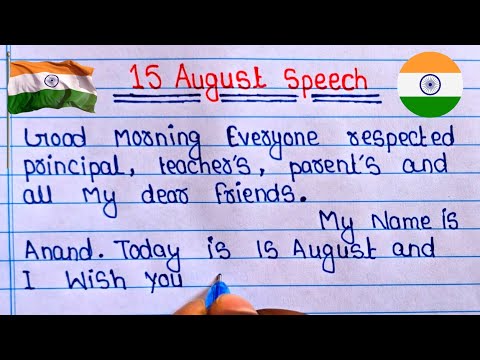 15 August Speech
Good Morning Everyone respected
principal, teacher's, parent's and
all My dear friends.
My Name is
Anand. Today is 15 August and
I Wish you